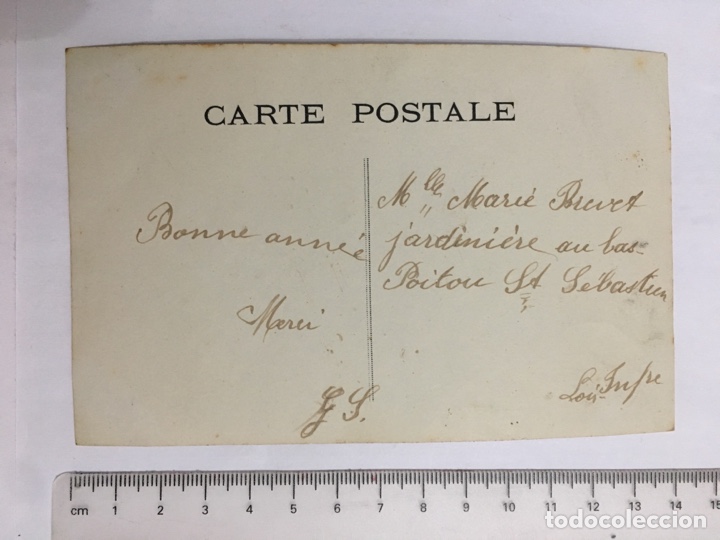 CARTE POSTALE
Bonne année
Merci
G S.
Mlle Marie Brevet
jardinière au bas-
Poitou St Sébastien
Loir-Infre
cm 1 2 3 4 5 6 7 8 9 10 11 12 13 14 15
todocoleccion